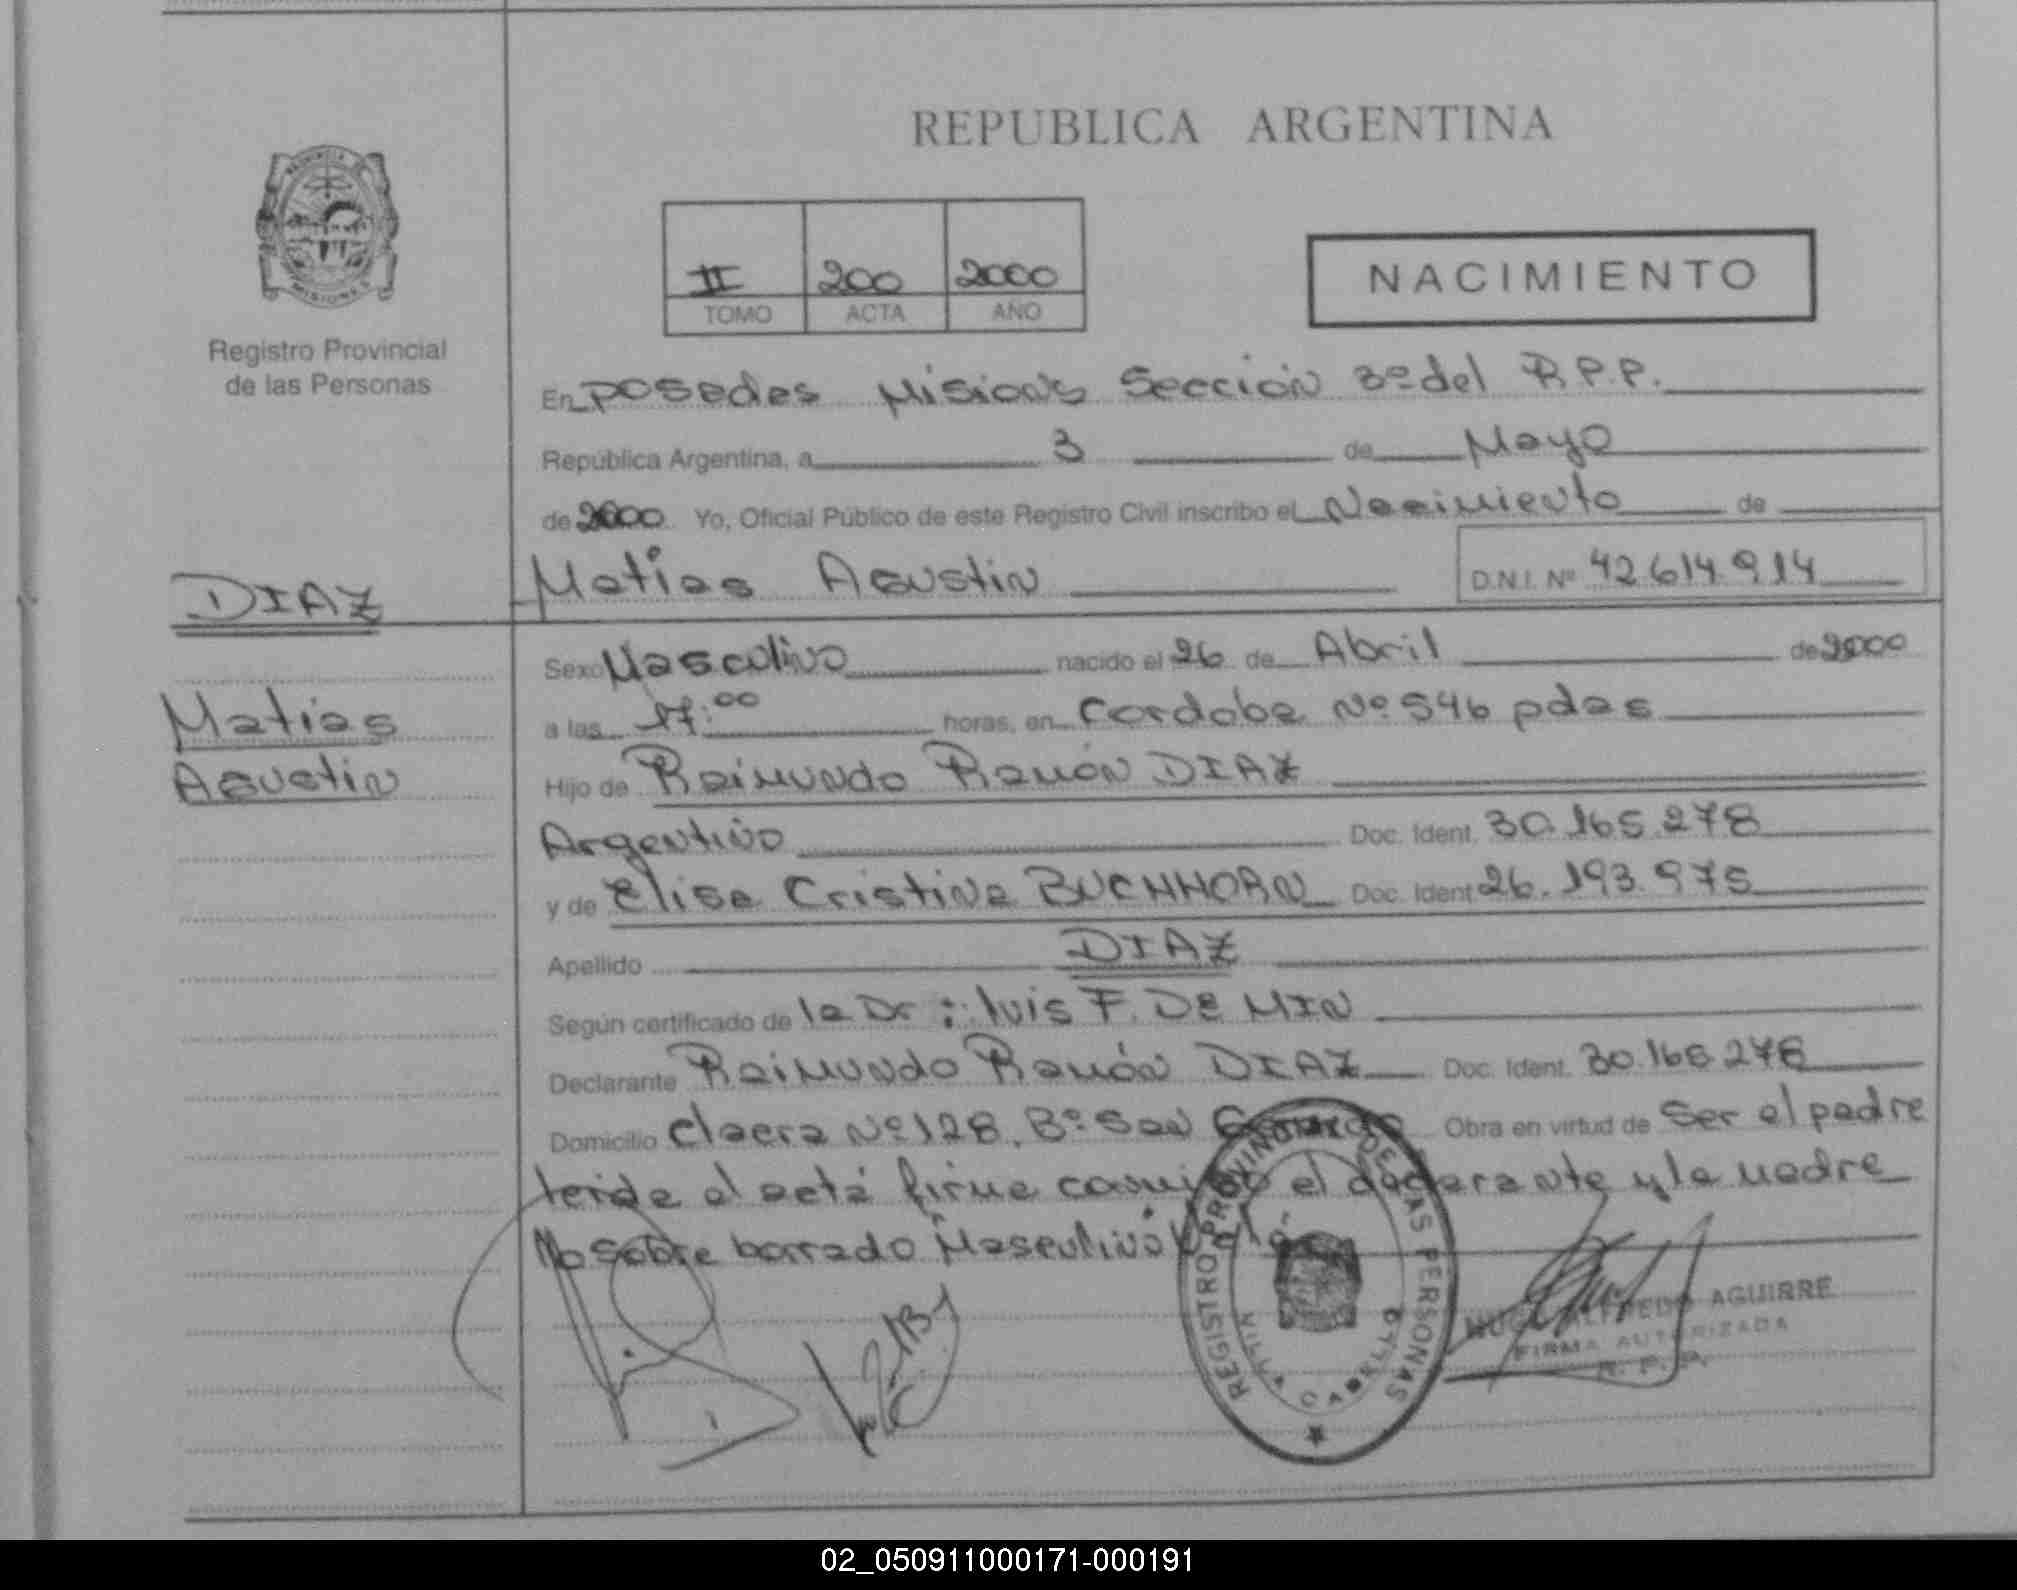 REPUBLICA ARGENTINA
PROVINCIA DE
MISIONES
Registro Provincial
de las Personas
II 200 2000
TOMO ACTA AÑO
NACIMIENTO
En posadas Misiones Sección 3º del R.P.P.
República Argentina, a 3 de Mayo
de 2000 Yo, Oficial Público de este Registro Civil inscribo el Nacimiento de
DIAZ
Matias Agustin D.N.I. Nº 42.614.914
Sexo Masculino nacido el 26 de Abril de 2000
Matias
Agustin
a las 17:00 horas, en Cordoba Nº 546 pdas
Hijo de Raimundo Ramón DIAZ
Argentino Doc. Ident. 30.165.278
y de Elisa Cristina BUCHHORN Doc. Ident 26.193.975
Apellido DIAZ
Según certificado de la Dr: luis F. DE MIN
Declarante Raimundo Ramón DIAZ Doc. Ident. 30.165.278
Domicilio Nº 128. Bº San Obra en virtud de Ser el padre
leida el acta firma el declarante y la madre
sobre borrado Masculino
REGISTRO PROVINCIAL DE LAS PERSONAS
VILLA CABELLO
HUGO ALFREDO AGUIRRE
FIRMA AUTORIZADA
R. P. P.
02_050911000171-000191